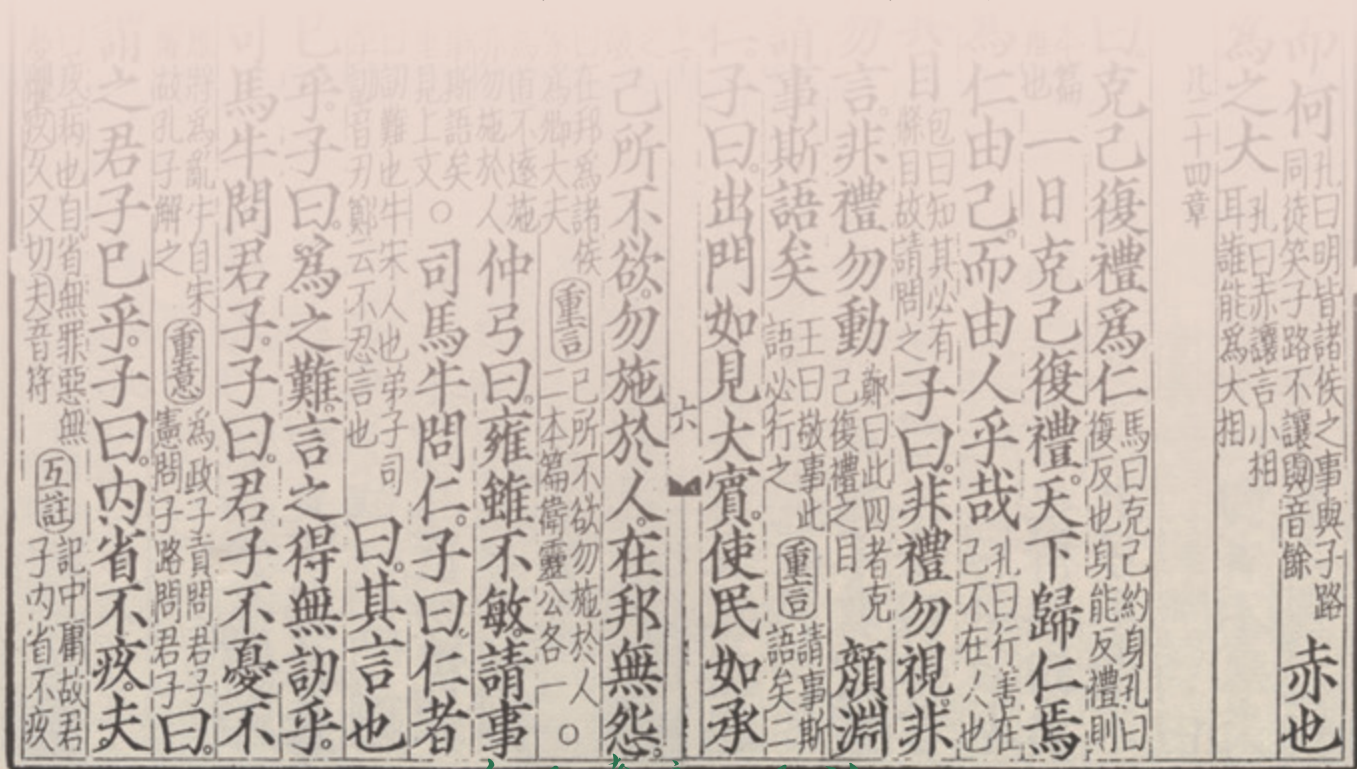 而何孔曰明皆諸侯之事與子路同徒笑子路不讓與音餘赤也
為之大孔曰赤讓言小相耳誰能為大相
凡二十四章
曰克己復禮爲仁馬曰克己約身孔曰復反也身能反禮則
篇也一日克己復禮。天下歸仁焉
爲仁由己。而由人乎哉孔曰行善在己不在人也
目包曰知其必有條目故請問之子曰。非禮勿視。非
勿言。非禮勿動鄭曰此四者克己復禮之目顏淵
請事斯語矣王曰敬事此語必行之重言請事斯語矣二
仁子曰。出門如見大賓。使民如承
六
己所不欲。勿施於人。在邦無怨。
曰在邦為諸侯家為卿大夫重言己所不欲勿施於人二本篇衛靈公各一○
不遂施勿施於人仲弓曰。雍雖不敏。請事
斯語矣見上文○司馬牛問仁。子曰。仁者
曰訒難也牛宋人也弟子司訒音刃鄭云不忍言也曰。其言也
已乎。子曰。爲之難。言之得無訒乎。
司馬牛問君子。子曰。君子不憂不
將爲亂牛自宋故孔子解之重意爲政子貢問君子憲問子路問君子曰。
謂之君子已乎。子曰。内省不疚。夫
曰疚病也自省無罪惡無疚久又切夫音符互註記中庸故君子内省不疚